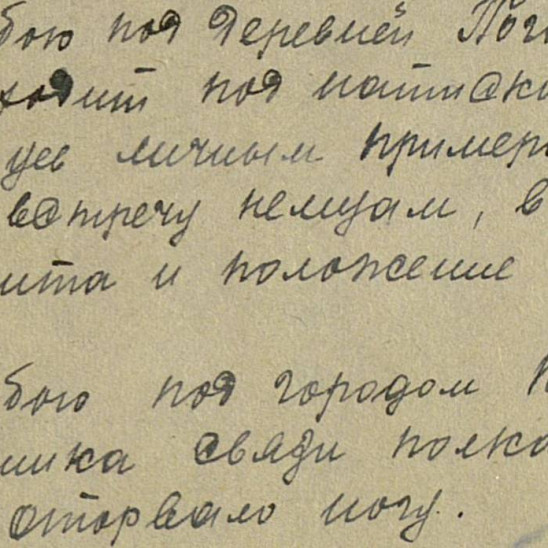 бою под деревней Пог
ходит под натиск
цев личным пример
встречу немцам, в
ита и положение
бою под городом
ника связи полка
оторвало ногу.